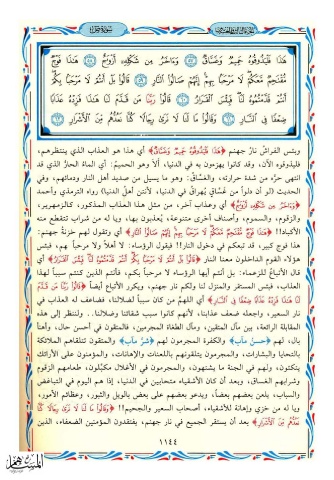 سورة ص
هَٰذَا فَلْيَذُوقُوهُ حَمِيمٌ وَغَسَّاقٌ ٥٧ وَءَاخَرُ مِن شَكْلِهِۦٓ أَزْوَٰجٌ ٥٨ هَٰذَا فَوْجٌ
مُّقْتَحِمٌ مَّعَكُمْ لَا مَرْحَبًۢا بِهِمْ إِنَّهُمْ صَالُوا۟ ٱلنَّارِ ٥٩ قَالُوا۟ بَلْ أَنتُمْ لَا مَرْحَبًۢا بِكُمْ
أَنتُمْ قَدَّمْتُمُوهُ لَنَا فَبِئْسَ ٱلْقَرَارُ ٦٠ قَالُوا۟ رَبَّنَا مَن قَدَّمَ لَنَا هَٰذَا فَزِدْهُ عَذَابًا
ضِعْفًا فِى ٱلنَّارِ ٦١ وَقَالُوا۟ مَا لَنَا لَا نَرَىٰ رِجَالًا كُنَّا نَعُدُّهُم مِّنَ ٱلْأَشْرَارِ ٦٢
وبئس الفراش نار جهنم ﴿هَٰذَا فَلْيَذُوقُوهُ حَمِيمٌ وَغَسَّاقٌ﴾ أي هذا هو العذاب الذي ينتظرهم،
فليذوقوه الآن، وقد كانوا يهزءون به في الدنيا، ألا وهو الحميم: أي الماء الحار الذي قد
انتهى حره من شدة حرارته، والغساق: وهو ما يسيل من صديد أهل النار ودمائهم، وفي
الحديث (لو أن دلوا من غساق يهراق في الدنيا، لأنتن أهل الدنيا) رواه الترمذي وأحمد
﴿وَءَاخَرُ مِن شَكْلِهِۦٓ أَزْوَٰجٌ﴾ أي وعذاب آخر، من مثل هذا العذاب المذكور، كالزمهرير،
والزقوم، والسموم، وأصناف أخرى متنوعة، يعذبون بها، ويا له من شراب تتقطع منه
الأكباد!! ﴿هَٰذَا فَوْجٌ مُّقْتَحِمٌ مَّعَكُمْ لَا مَرْحَبًۢا بِهِمْ إِنَّهُمْ صَالُوا۟ ٱلنَّارِ﴾ أي وتقول لهم خزنة جهنم:
هذا فوج كبير، قد تبعكم في دخول النار!! فيقول الرؤساء: لا أهلا ولا مرحبا بهم، فبئس
هؤلاء القوم الداخلون معنا النار ﴿قَالُوا۟ بَلْ أَنتُمْ لَا مَرْحَبًۢا بِكُمْ أَنتُمْ قَدَّمْتُمُوهُ لَنَا فَبِئْسَ ٱلْقَرَارُ﴾ أي
قال الأتباع للزعماء: بل أنتم أيها الرؤساء لا مرحبا بكم، فأنتم الذين كنتم سببا لهذا
العذاب، فبئس المستقر والمنزل لنا ولكم نار جهنم، ويكرر الأتباع أيضا ﴿قَالُوا۟ رَبَّنَا مَن قَدَّمَ
لَنَا هَٰذَا فَزِدْهُ عَذَابًا ضِعْفًا فِى ٱلنَّارِ﴾ أي اللهم من كان سببا لضلالنا، فضاعف له العذاب في
نار السعير، واجعله ضعف عذابنا، لأنهم كانوا سبب شقائنا وضلالنا.. ولننظر إلى هذه
المقابلة الرائعة، بين مآل المتقين، ومآل الطغاة المجرمين، فالمتقون في أحسن حال، وأهنأ
بال، لهم ﴿حُسْنَ مَـَٔابٍ﴾ والكفرة المجرمون لهم ﴿شَرَّ مَـَٔابٍ﴾ والمتقون تتلقاهم الملائكة
بالتحايا والبشارات، والمجرمون يتلقونهم باللعنات والإهانات، والمؤمنون على الأرائك
يتكئون، ولهم في الجنة ما يشتهون، والمجرمون في الأغلال مكبلون، طعامهم الزقوم
وشرابهم الغساق، وبعد أن كان الأشقياء متحابين في الدنيا، إذا هم اليوم في التباغض
والسباب، يلعن بعضهم بعضا، ويدعو بعضهم على بعض بالويل والثبور، وعظائم الأمور،
ويا له من خزي وإهانة للأشقياء، أصحاب السعير والجحيم!! ﴿وَقَالُوا۟ مَا لَنَا لَا نَرَىٰ رِجَالًا كُنَّا
نَعُدُّهُم مِّنَ ٱلْأَشْرَارِ﴾ أي بعد أن يستقر الجميع في نار جهنم، يفتقدون المؤمنين الضعفاء، الذين
١١٤٤